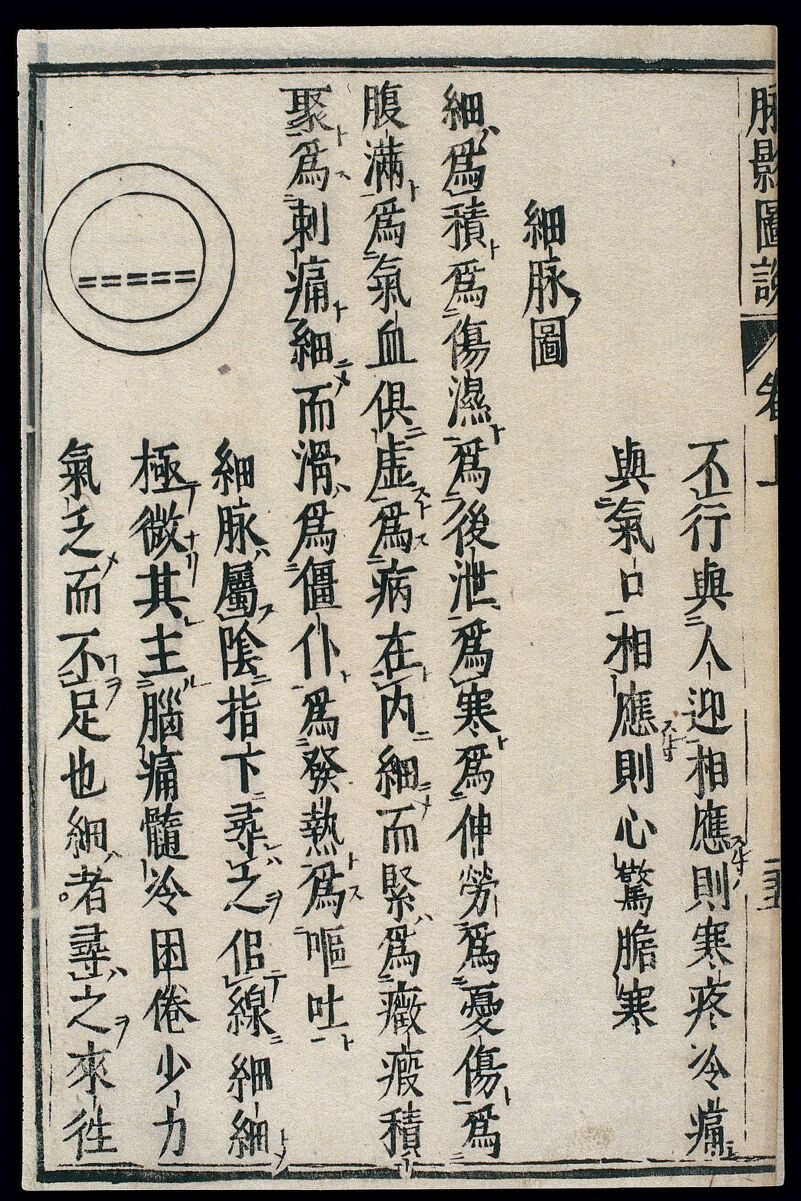 脉影圖説 卷上
不行與人迎相應則寒疼冷痛
與氣口相應則心驚膽寒
細脉圖
細爲積爲傷濕爲後泄爲寒爲伸勞爲憂傷爲
腹滿爲氣血俱虛爲病在內細而緊爲癥瘕積
聚爲刺痛細而滑爲僵仆爲發熱爲嘔吐
細脉屬陰指下尋之佀線細細
極微其主腦痛髓冷困倦少力
氣乏而不足也細者尋之來徃